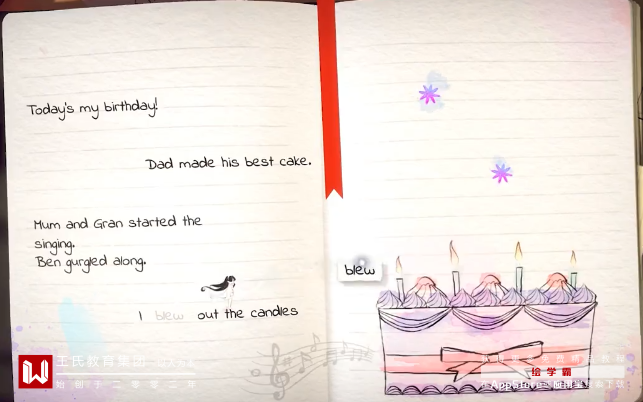 Today's my birthday!
Dad made his best cake.
Mum and Gran started the
singing.
Ben gurgled along.
I blew out the candles
blew
王氏教育集团
始创于二零零二年
绘学霸
AppStore